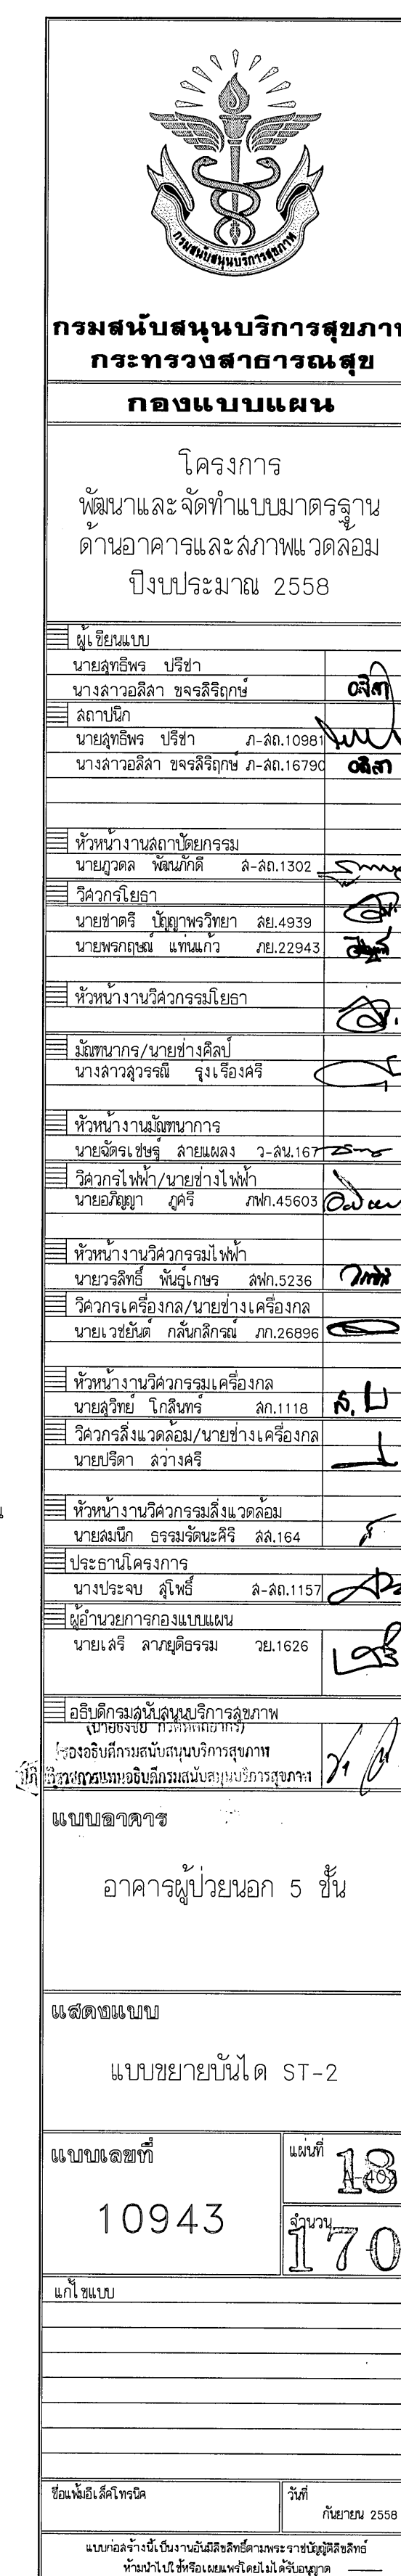 กรมสนับสนุนบริการสุขภาพ
กรมสนับสนุนบริการสุขภาพ
กระทรวงสาธารณสุข
กองแบบแผน
โครงการ
พัฒนาและจัดทำแบบมาตรฐาน
ด้านอาคารและสภาพแวดล้อม
ปีงบประมาณ 2558
ผู้เขียนแบบ
นายสุทธิพร ปรีชา
นางสาวอลิสา ขจรสิริฤกษ์ อลิสา
สถาปนิก
นายสุทธิพร ปรีชา ภ-สถ.10981
นางสาวอลิสา ขจรสิริฤกษ์ ภ-สถ.16790 อลิสา
หัวหน้างานสถาปัตยกรรม
นายภูวดล พัฒนภักดี ส-สถ.1302
วิศวกรโยธา
นายชาตรี ปัญญาพรวิทยา สย.4939
นายพรกฤษณ์ แท่นแก้ว ภย.22943
หัวหน้างานวิศวกรรมโยธา
มัณฑนากร/นายช่างศิลป์
นางสาวสุวรรณี รุ่งเรืองศรี
หัวหน้างานมัณฑนาการ
นายฉัตรเชษฐ์ สายแผลง ว-สน.167
วิศวกรไฟฟ้า/นายช่างไฟฟ้า
นายอภิญญา ภูศรี ภฟก.45603
หัวหน้างานวิศวกรรมไฟฟ้า
นายวรสิทธิ์ พันธุ์เกษร สฟก.5236
วิศวกรเครื่องกล/นายช่างเครื่องกล
นายเวชยันต์ กลั่นกสิกรณ์ ภก.26896
หัวหน้างานวิศวกรรมเครื่องกล
นายสุวิทย์ โกสินทร์ สก.1118
วิศวกรสิ่งแวดล้อม/นายช่างเครื่องกล
นายปรีดา สว่างศรี
หัวหน้างานวิศวกรรมสิ่งแวดล้อม
นายสมนึก ธรรมรัตนะศิริ สส.164
ประธานโครงการ
นางประจบ สุโพธิ์ ส-สถ.1157
ผู้อำนวยการกองแบบแผน
นายเสรี ลาภยุติธรรม วย.1626
อธิบดีกรมสนับสนุนบริการสุขภาพ
รองอธิบดีกรมสนับสนุนบริการสุขภาพ
ปฏิบัติราชการแทนอธิบดีกรมสนับสนุนบริการสุขภาพ
แบบอาคาร
อาคารผู้ป่วยนอก 5 ชั้น
แสดงแบบ
แบบขยายบันได ST-2
แบบเลขที่
10943
แผ่นที่
18
จำนวน
170
แก้ไขแบบ
ชื่อแฟ้มอิเล็คโทรนิค
วันที่
กันยายน 2558
แบบก่อสร้างนี้เป็นงานอันมีลิขสิทธิ์ตามพระราชบัญญัติลิขสิทธิ์
ห้ามนำไปใช้หรือเผยแพร่โดยไม่ได้รับอนุญาต